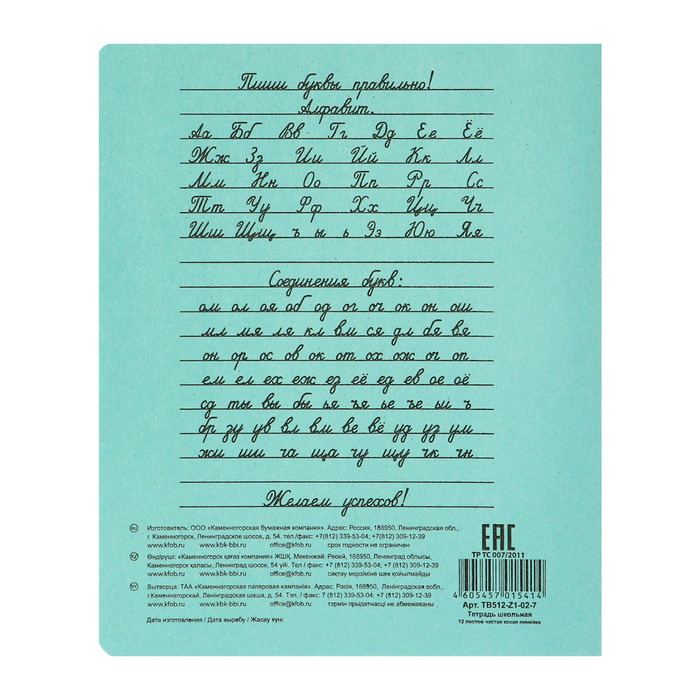 Пиши буквы правильно!
Алфавит.
Аа Бб Вв Гг Дд Ее Ёё
Жж Зз Ии Йй Кк Лл
Мм Нн Оо Пп Рр Сс
Тт Уу Фф Хх Цц Чч
Шш Щщ ъ ы ь Ээ Юю Яя
Соединения букв:
ом ол оя об од ог оч ок он ош
мл мя ля кл вм ся дл бя вя
он ор ос ов ок от ох ож оч оп
ем ел ех еж ез её ед ев ое оё
сд ты вы бы ья ъя ье ъе ьи ъ
бр зу ув вл вм ве вё уд уз ум
жи ши ча ща чу щу чк чн
Желаем успехов!
RU Изготовитель: ООО «Каменногорская бумажная компания». Адрес: Россия, 188950, Ленинградская обл.,
г. Каменногорск, Ленинградское шоссе, д. 54. тел./факс: +7(812) 339-53-04; +7(812) 309-12-39
www.kfob.ru www.kbk-bbi.ru office@kfob.ru срок годности не ограничен
KZ Өндіруші: «Каменногорск қағаз компания» ЖШҚ. Мекенжай: Ресей, 188950, Ленинград облысы,
Каменногорск қаласы, Ленинград шоссе, 54 үйі. Тел / факс: +7 (812) 339-53-04; +7 (812) 309-12-39
www.kfob.ru www.kbk-bbi.ru office@kfob.ru сақтау мерзіміне шек қойылмайды
BY Вытворца: ТАА «Каменнагорская папяровая кампанія». Адрас: Расія, 188950, Ленінградская вобл.,
г.Каменнагорскай, Ленінградская шаша, д. 54. Тэл. / факс: 7 (812) 339-53-04; +7 (812) 309-12-39
www.kfob.ru www.kbk-bbi.ru office@kfob.ru тэрмін прыдатнасці не абмежаваны
Дата изготовления / Дата вырабу / Жасау күні:
EAC
ТР ТС 007/2011
4 605457 015414
Арт. ТВ512-Z1-02-7
Тетрадь школьная
12 листов частая косая линейка